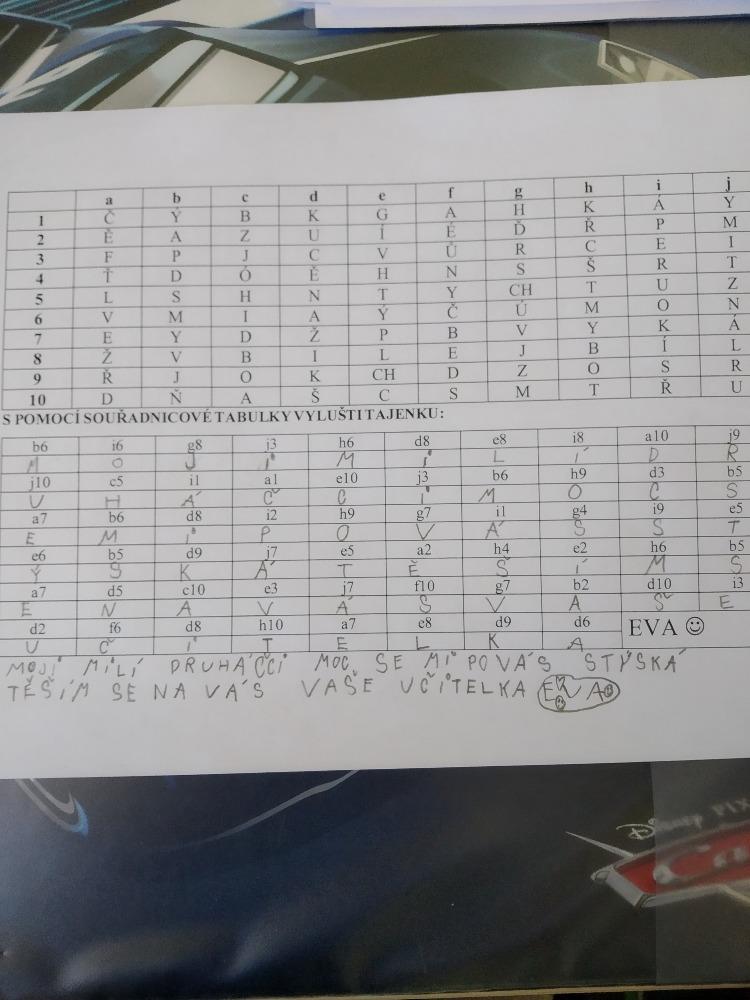 a b c d e f g h i j
1 Č Ý B K G A H K Á Y
2 Ě A Z U Í É Ď Ř P M
3 F P J C V Ů R C E I
4 Ť D Ó Ě H N S Š R T
5 L S H N T Y CH T U Z
6 V M I A Ý Č Ú M O N
7 E Y D Ž P B V Y K Á
8 Ž V B I L E J B Í L
9 Ř J O K CH D Z O S R
10 D Ň A Š C S M T Ř U
S POMOCÍ SOUŘADNICOVÉ TABULKY VYLUŠTI TAJENKU:
b6 i6 g8 j3 h6 d8 e8 i8 a10 j9
M O J I M I L Í D R
j10 c5 i1 a1 e10 j3 b6 h9 d3 b5
U H Á Č C I M O C S
a7 b6 d8 i2 h9 g7 i1 g4 i9 e5
E M I P O V Á S S T
e6 b5 d9 j7 e5 a2 h4 e2 h6 b5
Ý S K Á T Ě Š Í M S
a7 d5 c10 e3 j7 f10 g7 b2 d10 i3
E N A V Á S V A Š E
d2 f6 d8 h10 a7 e8 d9 d6 EVA ☺
U Č I T E L K A
MOJI MILÍ DRUHÁČCI MOC SE MI PO VÁS STÝSKÁ
TĚŠÍM SE NA VÁS VAŠE UČITELKA EVA
Disney PIXAR